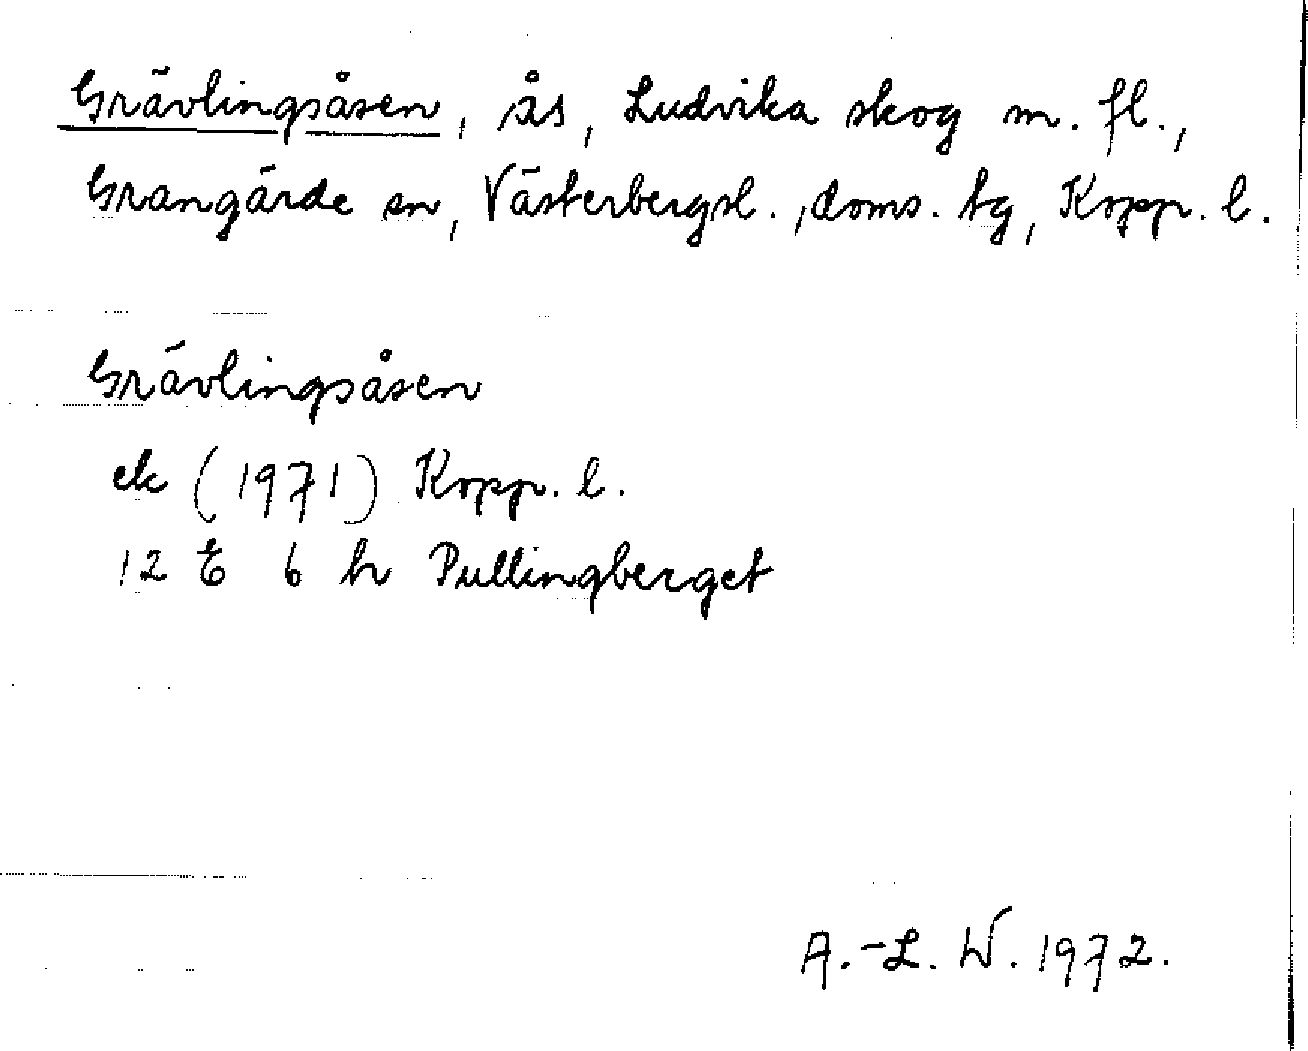 Grävlingsåsen, ås, Ludvika skog m. fl.,
Grangärde sn, Västerbergsl., doms. tg, Kopp. l.
Grävlingsåsen
ek (1971) Kopp. l.
12 E 6 h Pullingberget
A.-L. W. 1972.